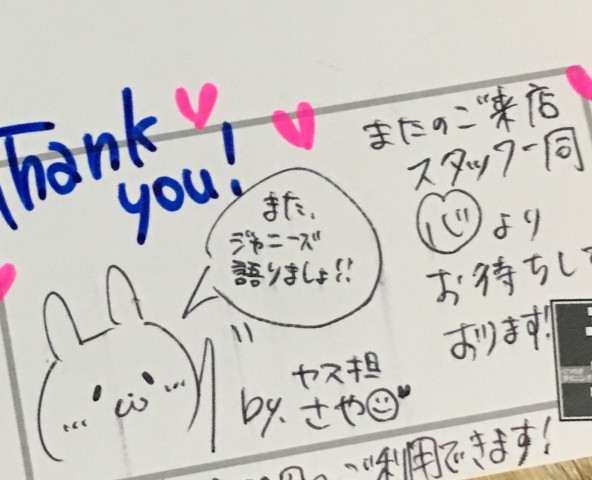 Thank
you!
またのご来店
スタッフ一同
心より
お待ちして
おります!
また、
ジャニーズ
語りましょ!!
ヤス担
by. さや
ご利用できます!